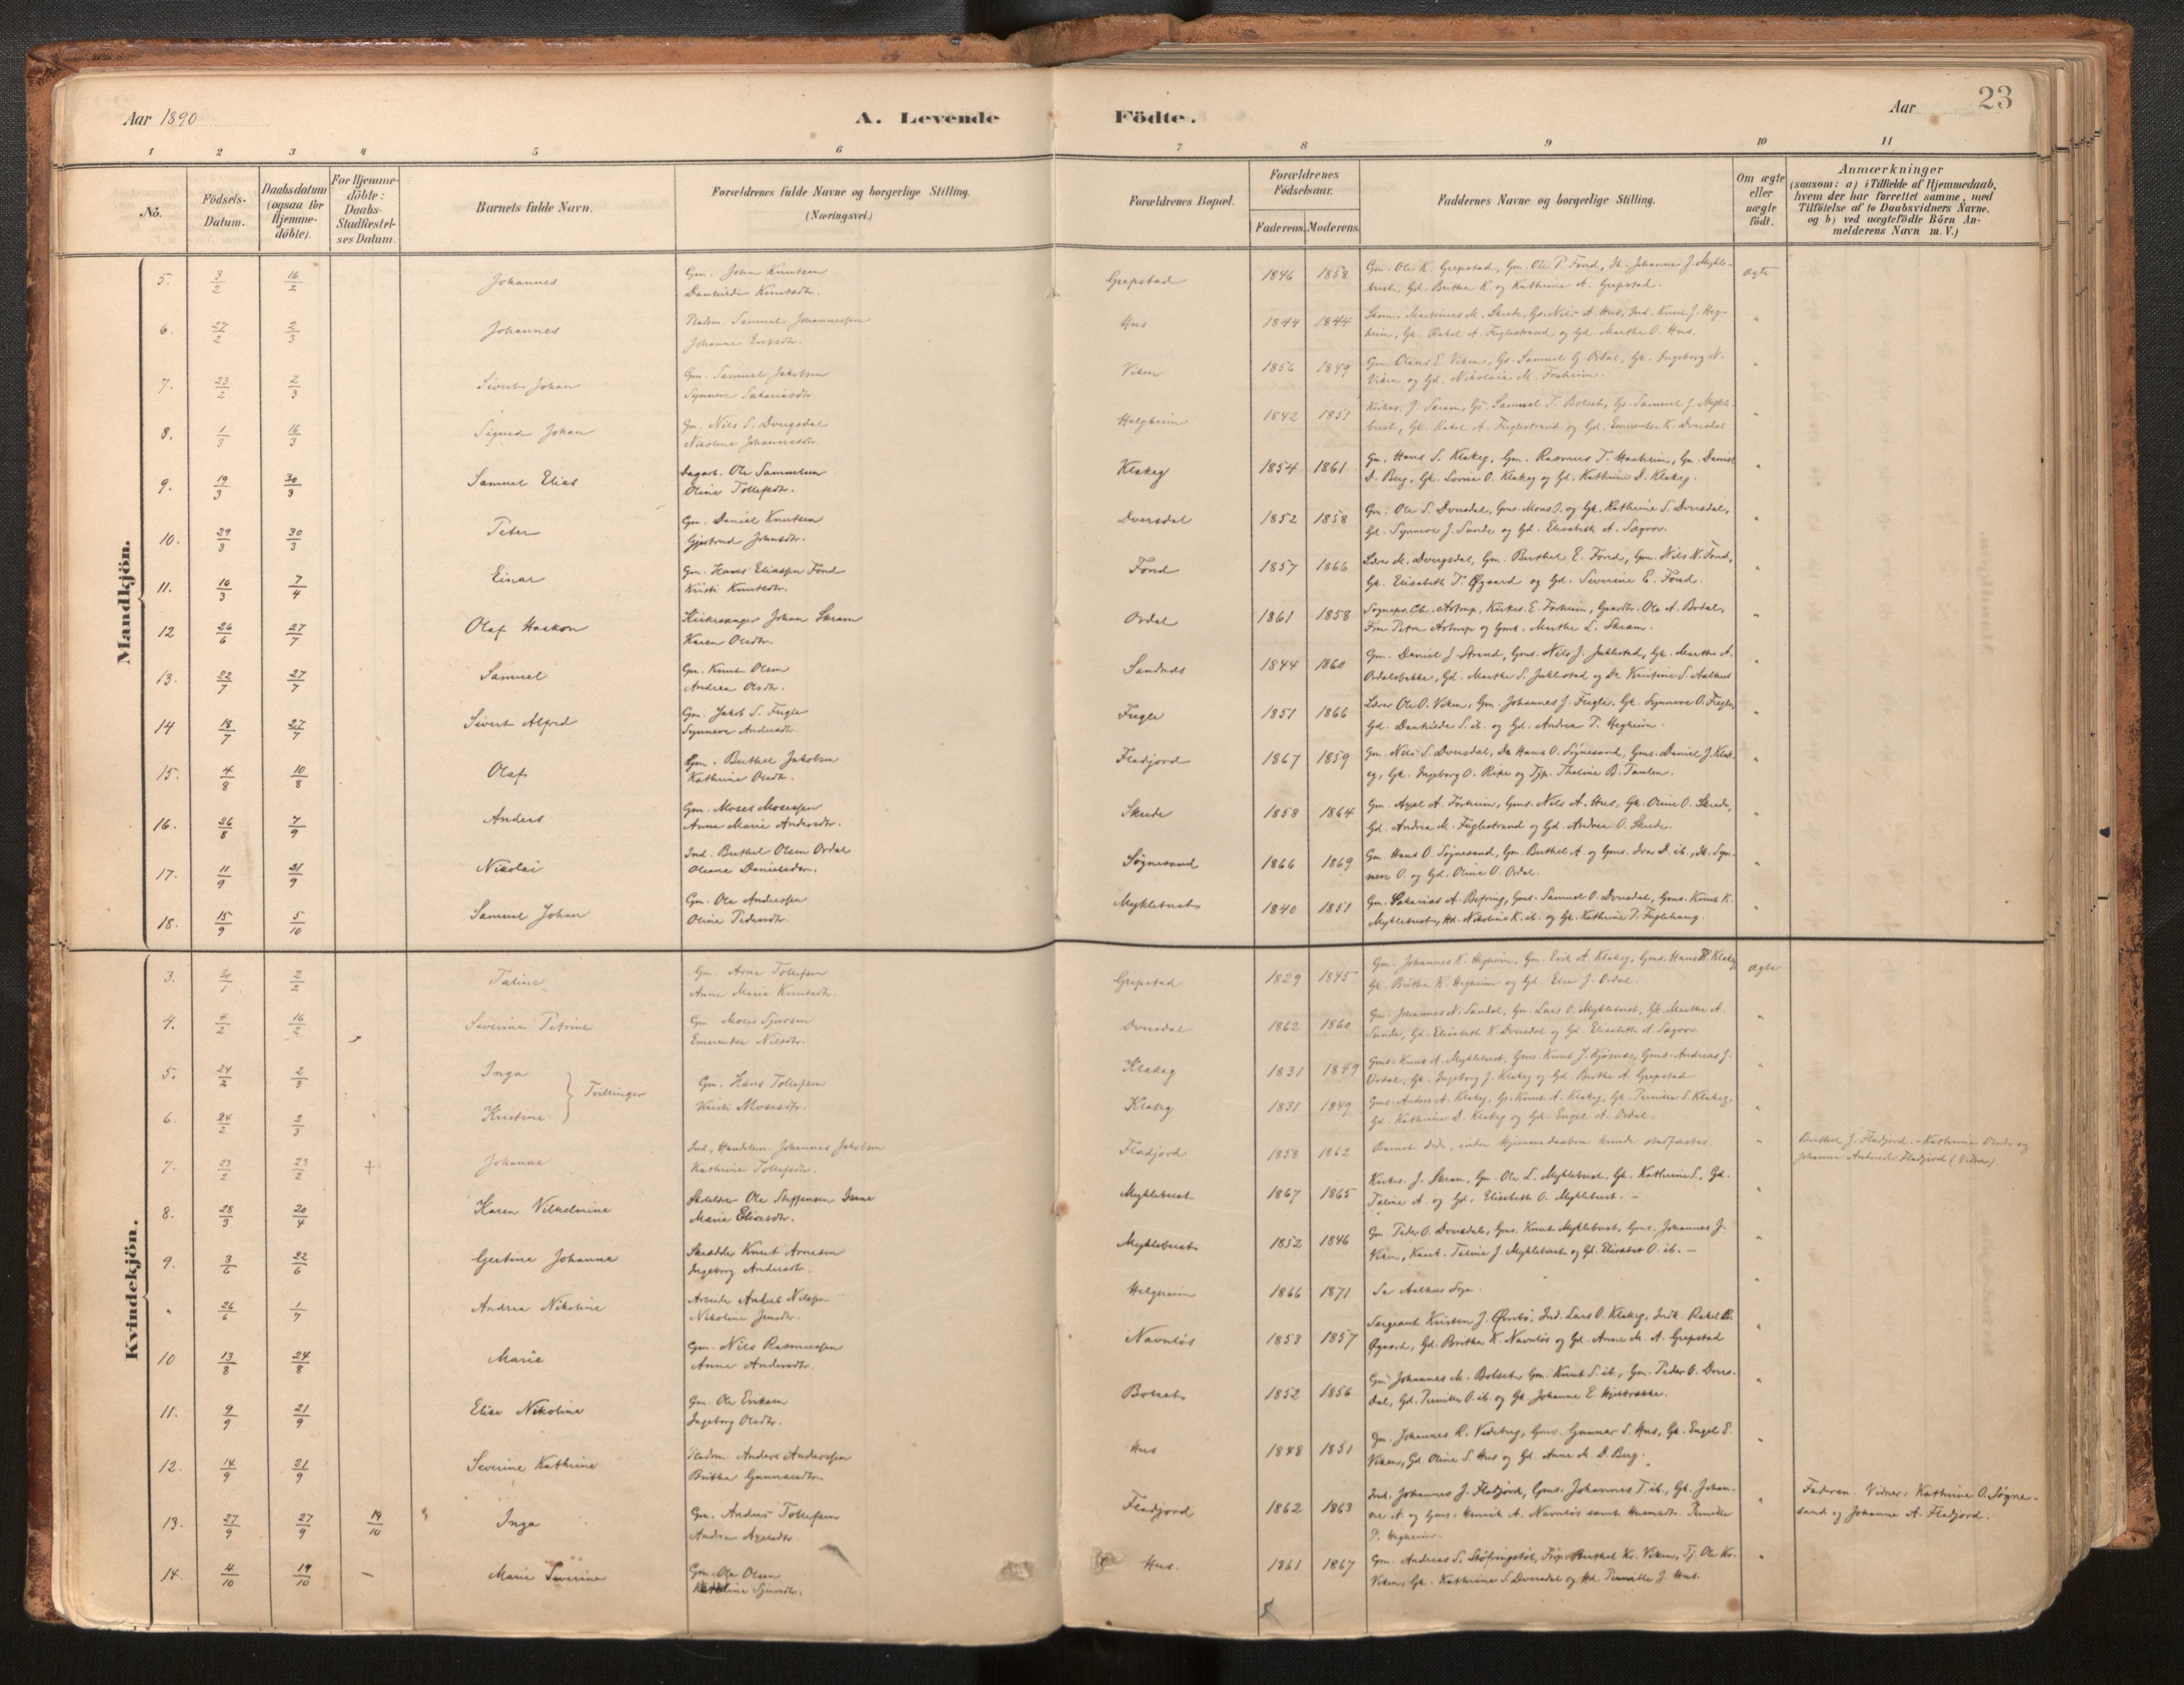 Aar 1890
A. Levende Födte.
Aar
23
1 2 3 4 5 6 7 8 9 10 11
No.
Födsels-Datum.
Daabsdatum (ogsaa for Hjemme-döbte).
For Hjemme-döbte: Daabs-Stadfæstel-ses Datum.
Barnets fulde Navn.
Forældrenes fulde Navne og borgerlige Stilling.
(Næringsvei.)
Forældrenes Bopæl.
Forældrenes Födselsaar.
Faderens. Moderens.
Faddernes Navne og borgerlige Stilling.
Om ægte eller uægte födt.
Anmærkninger
(saasom: a) i Tilfælde af Hjemmedaab, hvem der har forrettet samme, med Tilföielse af to Daabsvidners Navne, og b) ved uægtefödte Börn An-melderens Navn m. V.)
Mandkjön.
5. 3/2 16/2 Johannes Gm. John Knutsen Grepstad 1846 1858 Gm. Ole K. Grepstad, Gm. Ole P. Fond, H. Johanne J. Mykle- ægte
Danhilde Knutsdtr. bust, Gd. Brithe K. og Kathrine A. Grepstad.
6. 27/2 2/3 Johannes Pladsm. Samuel Johannessen Hus 1844 1844 Martinus M. Skrede, Gs. Nils A. Hus, Ind. Knut J. Heg- "
Johanne Eriksdtr. heim, Gk. Rakel A. Fuglestrand og Gd. Marthe O. Hus.
7. 23/2 2/3 Sivert Johan Gm. Samuel Jakobsen Viken 1856 1849 Gm. Olaus E. Viken, Gs. Samuel G. Ordal, Gk. Ingeborg N. "
Synneve Sakariasdtr. Viken og Gd. Nikolaia M. Forheim.
8. 1/3 16/3 Sigurd Johan Gm. Nils S. Dvergsdal Helgheim 1842 1851 Kirkes. J. Skram, Gs. Samuel T. Bolset, Gs. Samuel J. Mykle- "
Nikoline Johannesdtr. bust, Gk. Rakel A. Fuglestrand og Gd. Emerentse K. Dversdal
9. 19/3 30/3 Samuel Elias Dagarb. Ole Samuelsen Klakeg 1854 1861 Gm. Hans S. Klakeg, Gm. Rasmus T. Haaheim, Gm. Daniel "
Oline Tollefsdtr. D. Berg, Gk. Lovise O. Klakeg og Gd. Kathrine D. Klakeg.
10. 29/3 30/3 Peter Gm. Daniel Knutsen Dversdal 1852 1858 Gm. Ole S. Dversdal, Gms. Mons O. og Gk. Kathrine S. Dversdal, "
Gjertrud Johnsdtr. Gd. Synneve J. Sunde og Gd. Elisabeth A. Sægrov.
11. 10/3 7/4 Einar Gm. Hans Eliassen Fond Fond 1857 1866 Lærer M. Dvergsdal, Gm. Berthel E. Fond, Gm. Nils N. Fond, "
Kristi Knutsdtr. Gk. Elisabeth T. Øgaard og Gd. Severine E. Fond.
12 26/6 27/7 Olaf Haakon Kirkesanger Johan Skram Ordal 1861 1858 Sognepr. Chr. Astrup, Kirkes. E. Forheim, Gaardbr. Ole A. Bodal, "
Karen Olsdtr. Fru Petra Astrup og Gmk. Marthe L. Skram.
13. 22/7 27/7 Samuel Gm. Knut Olsen Sandnes 1844 1860 Gm. Daniel J. Strand, Gms. Nils J. Juklestad, Gk. Marthe A. "
Andrea Olsdtr. Ordalsbakke, Gd. Marthe S. Juklestad og Dr. Kristine S. Aalhus
14 18/7 27/7 Sivert Alfred Gm. Jakob S. Fugle Fugle 1851 1866 Lærer Ole O. Viken, Gm. Johannes J. Fugle, Gk. Synneve O. Fugle, "
Synneve Andersdtr. Gd. Danhilde S. ib. og Gd. Andrea T. Hegheim.
15. 4/8 10/8 Olaf Gm. Berthel Jakobsen Fladjord 1867 1859 Gm. Nils S. Dversdal, Dr. Hans O. Søgnesand, Gms. Daniel J. Klak- "
Kathrine Olsdtr. eg, Gk. Ingeborg O. Ripe og Tjp. Thaline B. Taulen.
16. 26/8 7/9 Anders Gm. Moses Mosessen Skrede 1858 1864 Gm. Axel A. Forheim, Gms. Nils A. Hus, Gk. Oline O. Skrede, "
Anne Marie Andersdtr. Gd. Andrea M. Fuglestrand og Gd. Andrea O. Skrede.
17. 11/9 21/9 Nikolai Ind. Berthel Olsen Ordal Søgnesand 1866 1869 Gm. Hans O. Søgnesand, Gm. Berthel A. og Gms. Ivar D. ib., H. Syn- "
Oliane Danielsdtr. neve O. og Gd. Oline O. Ordal.
18. 15/9 5/10 Samuel Johan Gm. Ole Anderssen Myklebust 1840 1851 Gm. Sakarias A. Befring, Gms. Samuel O. Dvesdal, Gms. Knut K. "
Oline Pedersdtr. Myklebust, Hd. Nikoline K. ib. og Gk. Kathrine P. Fuglehaug.
Kvindekjön.
3. 30/1 2/2 Taline Gm. Arne Tollefsen Grepstad 1829 1845 Gm. Johannes K. Hegheim, Gm. Erik A. Klakeg, Gms. Hans H. Klakeg ægte
Anne Marie Knutsdtr. Gk. Brithe K. Hegheim og Gd. Else J. Ordal.
4. 4/2 16/2 Severine Petrine Gm. Moses Sjursen Dvesdal 1862 1860 Gm. Johannes N. Sandal, Gm. Lars O. Myklebust, Gk. Marthe A. "
Emerentse Nilsdtr. Sunde, Gd. Elisabeth K. Dvesdal og Gd. Elisabeth A. Sægrov.
5. 24/2 2/3 Inga Tvillinger Gm. Hans Tollefsen Klakeg 1831 1849 Gms. Knut A. Myklebust, Gms. Knut J. Kjøsnes, Gms. Andreas J. "
Ordal, Gk. Ingeborg J. Klakeg og Gd. Berthe A. Grepstad
6. 24/2 2/3 Kristine Kristi Mosesdtr. Klakeg 1831 1849 Gms. Anders A. Klakeg, Gs. Knut A. Klakeg, Gk. Pernille S. Klakeg, "
Gd. Kathrine D. Klakeg og Gd. Engel A. Ordal.
7. 23/2 23/2 + Johanne Ind., Handelsm. Johannes Jakobsen Fladjord 1858 1862 Barnet døde, inden Hjemmedaaben kunde stadfæstes. " Berthel J. Fladjord. - Kathrine Olsdtr og
Kathrine Tollefsdtr. Johanne Andersdtr Fladjord (Vidner).
8. 28/3 20/4 Karen Vilhelmine Ole Steffensen Myklebust 1867 1865 Kirkes. J. Skram, Gm. Ole L. Myklebust, Gk. Kathrine S., Gd. "
Marie Eliasdtr. Taline A. og Gd. Elisabeth O. Myklebust. -
9. 3/6 22/6 Gjertine Johanne Skrædder Knut Arnesen Myklebust 1852 1846 Gm. Peder O. Dvesdal, Gms. Knut Myklebust, Gms. Johannes J. "
Ingeborg Andersdtr. Viken, Taline J. Myklebust og Gd. Elisabet O. ib. -
" 26/6 1/7 Andrea Nikoline Arbeider Anders Nilssen Helgheim 1866 1871 Se Aalhus Sogn. "
Nikoline Jensdtr.
10 13/8 24/8 Marie Gm. Nils Rasmussen Navnløs 1853 1857 Sergeant Kristen J. Ørebø, Ind. Lars O. Klakeg, Indk. Rakel R. "
Anne Andersdtr. Øgaard, Gd. Brithe K. Navnløs og Gd. Anne M. A. Grepstad
11. 9/9 21/9 Elise Nikoline Gm. Ole Eriksen Bolset 1852 1856 Gm. Johannes M. Bolset, Gm. Knut S. ib., Gm. Peder O. Dves- "
Ingeborg Olsdtr. dal, Gd. Pernille O. ib. og Gk. Johanne E.
12. 14/9 21/9 Severine Kathrine Pladsm. Anders Anderssen Hus 1848 1851 Gm. Johannes R. Gms. Gunnar S. Hus, Gk. Engel E. "
Brithe Gunnarsdtr. Viken, Gd. Oline S. Hus og Gd. Anne M. D. Berg.
13. 27/9 27/9 19/10 Inga Gm. Anders Tollefsen Fladjord 1862 1863 Ind. Johannes J. Fladjord, Gms. Johannes T. ib., Gk. Johan- " Faderen. Vidner: Kathrine O. Søgne-
Andrea Axelsdtr. ne A. og Gms. Henrik A. Navnløs samt Husmdtr. Pernille sand og Johanne A. Fladjord.
P. Hegheim.
14. 4/10 19/10 - Marie Severine Gm. Ole Olsen Hus. 1861 1867 Gm. Andreas S. Støfringstøl, Berthel Kr. Viken, Tj. Ole Kr. "
Sjursdtr. Viken, Gk. Kathrine S. Dvesdal og Hd. Pernille J. Hus.